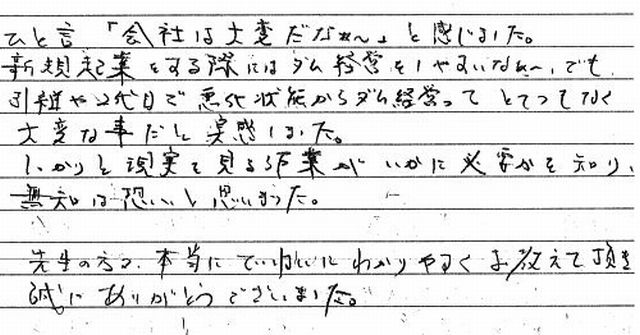 ひと言「会社は大変だなぁ～」と感じました。
新規起業をする際にはダム経営をしやすいなぁ～、でも
引継や2代目で悪化状態からダム経営って とてつもなく
大変な事だと実感しました。
しっかりと現実を見る作業がいかに必要かを知り、
無知は恐いと思いました。
先生の方々、本当にていねいにわかりやすくお教えて頂き
誠にありがとうございました。